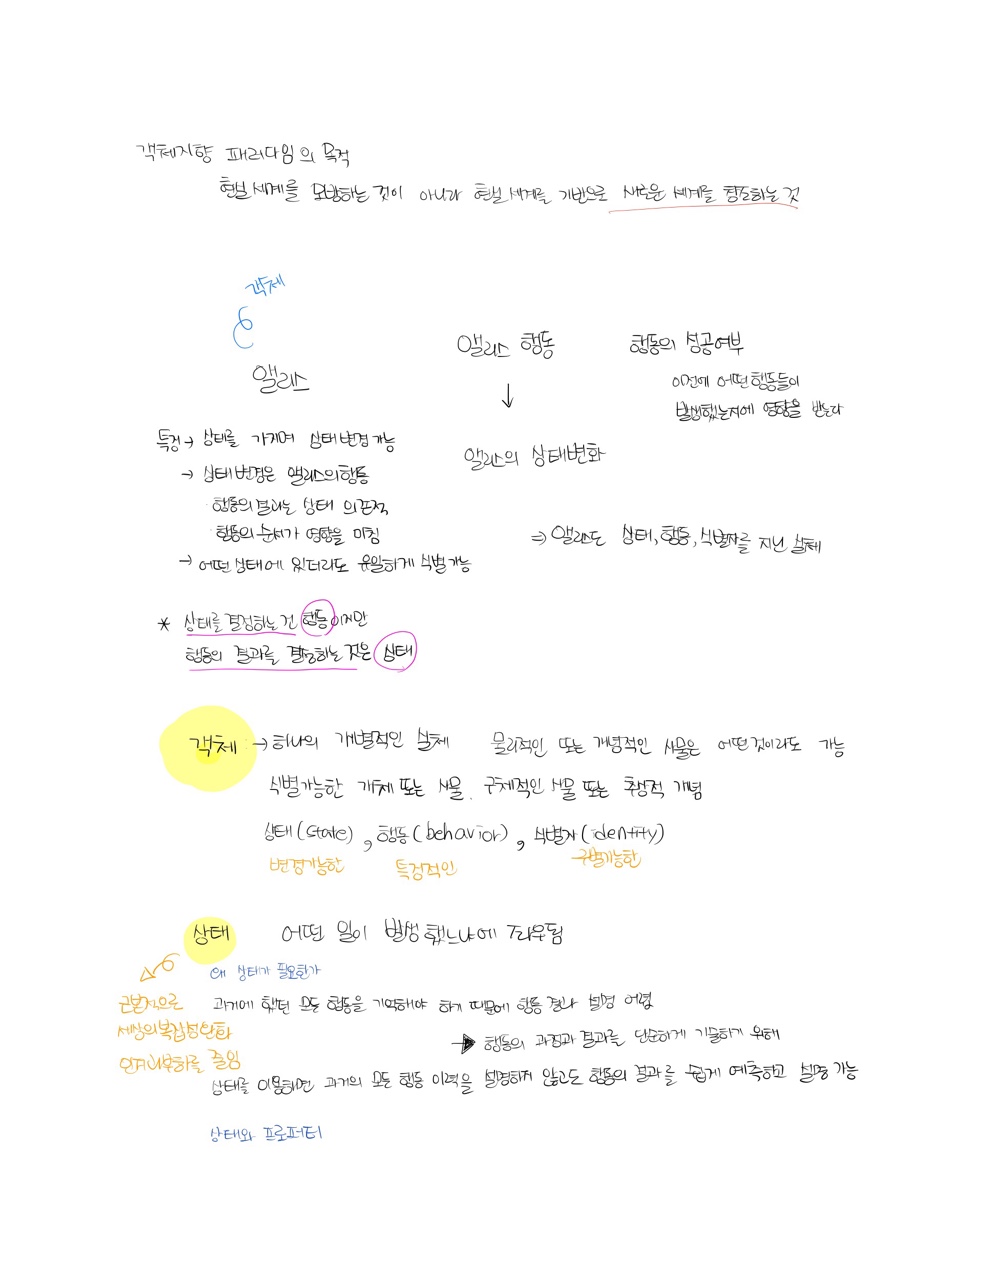 객체지향 패러다임의 목적
현실세계를 모방하는 것이 아니라 현실세계를 기반으로 새로운 세계를 창조하는 것
객체
앨리스
특징 → 상태를 가지며 상태변경가능
→ 상태변경은 앨리스의 행동
· 행동의 결과는 상태 의존적
· 행동의 순서가 영향을 미침
→ 어떤 상태에 있더라도 유일하게 식별가능
앨리스 행동
↓
앨리스의 상태변화
행동의 성공여부
이전에 어떤 행동들이
발생했는지에 영향을 받는다
⇒ 앨리스는 상태, 행동, 식별자를 지닌 실체
* 상태를 결정하는 건 행동이지만
행동의 결과를 결정하는 것은 상태
객체 → 하나의 개별적인 실체 물리적인 또는 개념적인 사물은 어떤것이라도 가능
식별가능한 개체 또는 사물. 구체적인 사물 또는 추상적 개념
상태(state), 행동(behavior), 식별자(identity)
변경가능한 특징적인 구별가능한
상태 어떤 일이 발생했느냐에 좌우됨
왜 상태가 필요한가
근본적으로
세상의 복잡성 완화
인지과부하를 줄임
과거에 했던 모든 행동을 기억해야 하기 때문에 행동 결과 설명 어렵
→ 행동의 과정과 결과를 단순하게 기술하기 위해
상태를 이용하면 과거의 모든 행동 이력을 설명하지 않고도 행동의 결과를 쉽게 예측하고 설명 가능
상태와 프로퍼티